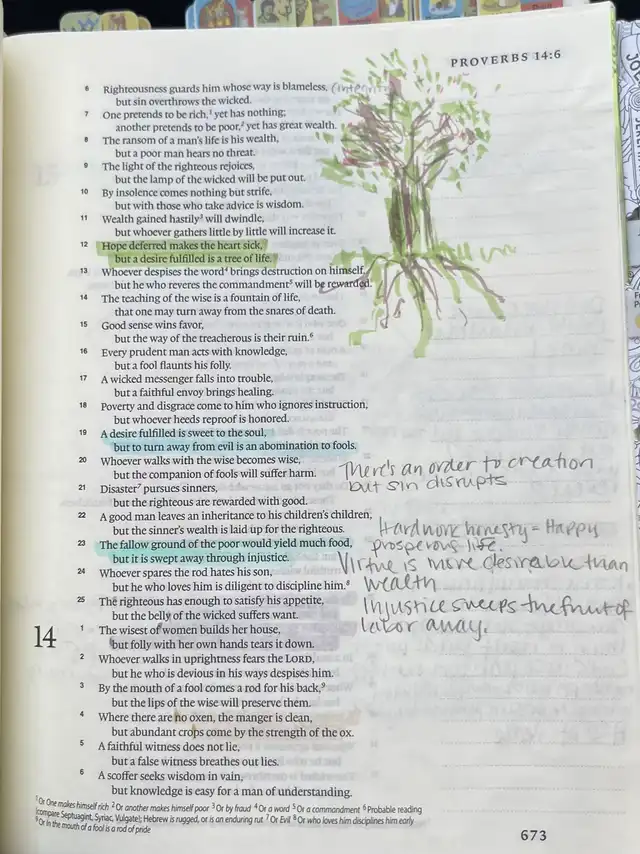 PROVERBS 14:6
6 Righteousness guards him whose way is blameless, (integrity
but sin overthrows the wicked.
7 One pretends to be rich,¹ yet has nothing;
another pretends to be poor,² yet has great wealth.
8 The ransom of a man's life is his wealth,
but a poor man hears no threat.
9 The light of the righteous rejoices,
but the lamp of the wicked will be put out.
10 By insolence comes nothing but strife,
but with those who take advice is wisdom.
11 Wealth gained hastily³ will dwindle,
but whoever gathers little by little will increase it.
12 Hope deferred makes the heart sick,
but a desire fulfilled is a tree of life.
13 Whoever despises the word⁴ brings destruction on himself,
but he who reveres the commandment⁵ will be rewarded.
14 The teaching of the wise is a fountain of life,
that one may turn away from the snares of death.
15 Good sense wins favor,
but the way of the treacherous is their ruin.⁶
16 Every prudent man acts with knowledge,
but a fool flaunts his folly.
17 A wicked messenger falls into trouble,
but a faithful envoy brings healing.
18 Poverty and disgrace come to him who ignores instruction,
but whoever heeds reproof is honored.
19 A desire fulfilled is sweet to the soul,
but to turn away from evil is an abomination to fools.
20 Whoever walks with the wise becomes wise,
but the companion of fools will suffer harm.
21 Disaster⁷ pursues sinners,
but the righteous are rewarded with good.
22 A good man leaves an inheritance to his children's children,
but the sinner's wealth is laid up for the righteous.
23 The fallow ground of the poor would yield much food,
but it is swept away through injustice.
24 Whoever spares the rod hates his son,
but he who loves him is diligent to discipline him.⁸
25 The righteous has enough to satisfy his appetite,
but the belly of the wicked suffers want.
14
1 The wisest of women builds her house,
but folly with her own hands tears it down.
2 Whoever walks in uprightness fears the LORD,
but he who is devious in his ways despises him.
3 By the mouth of a fool comes a rod for his back,⁹
but the lips of the wise will preserve them.
4 Where there are no oxen, the manger is clean,
but abundant crops come by the strength of the ox.
5 A faithful witness does not lie,
but a false witness breathes out lies.
6 A scoffer seeks wisdom in vain,
but knowledge is easy for a man of understanding.
There's an order to creation
but sin disrupts
Hardwork honesty = Happy
prosperous life.
Virtue is more desirable than
wealth
Injustice sweeps the fruit of
labor away.
¹ Or One makes himself rich ² Or another makes himself poor ³ Or by fraud ⁴ Or a word ⁵ Or a commandment ⁶ Probable reading
(compare Septuagint, Syriac, Vulgate); Hebrew is rugged, or is an enduring rut ⁷ Or Evil ⁸ Or who loves him disciplines him early
⁹ Or In the mouth of a fool is a rod of pride
673